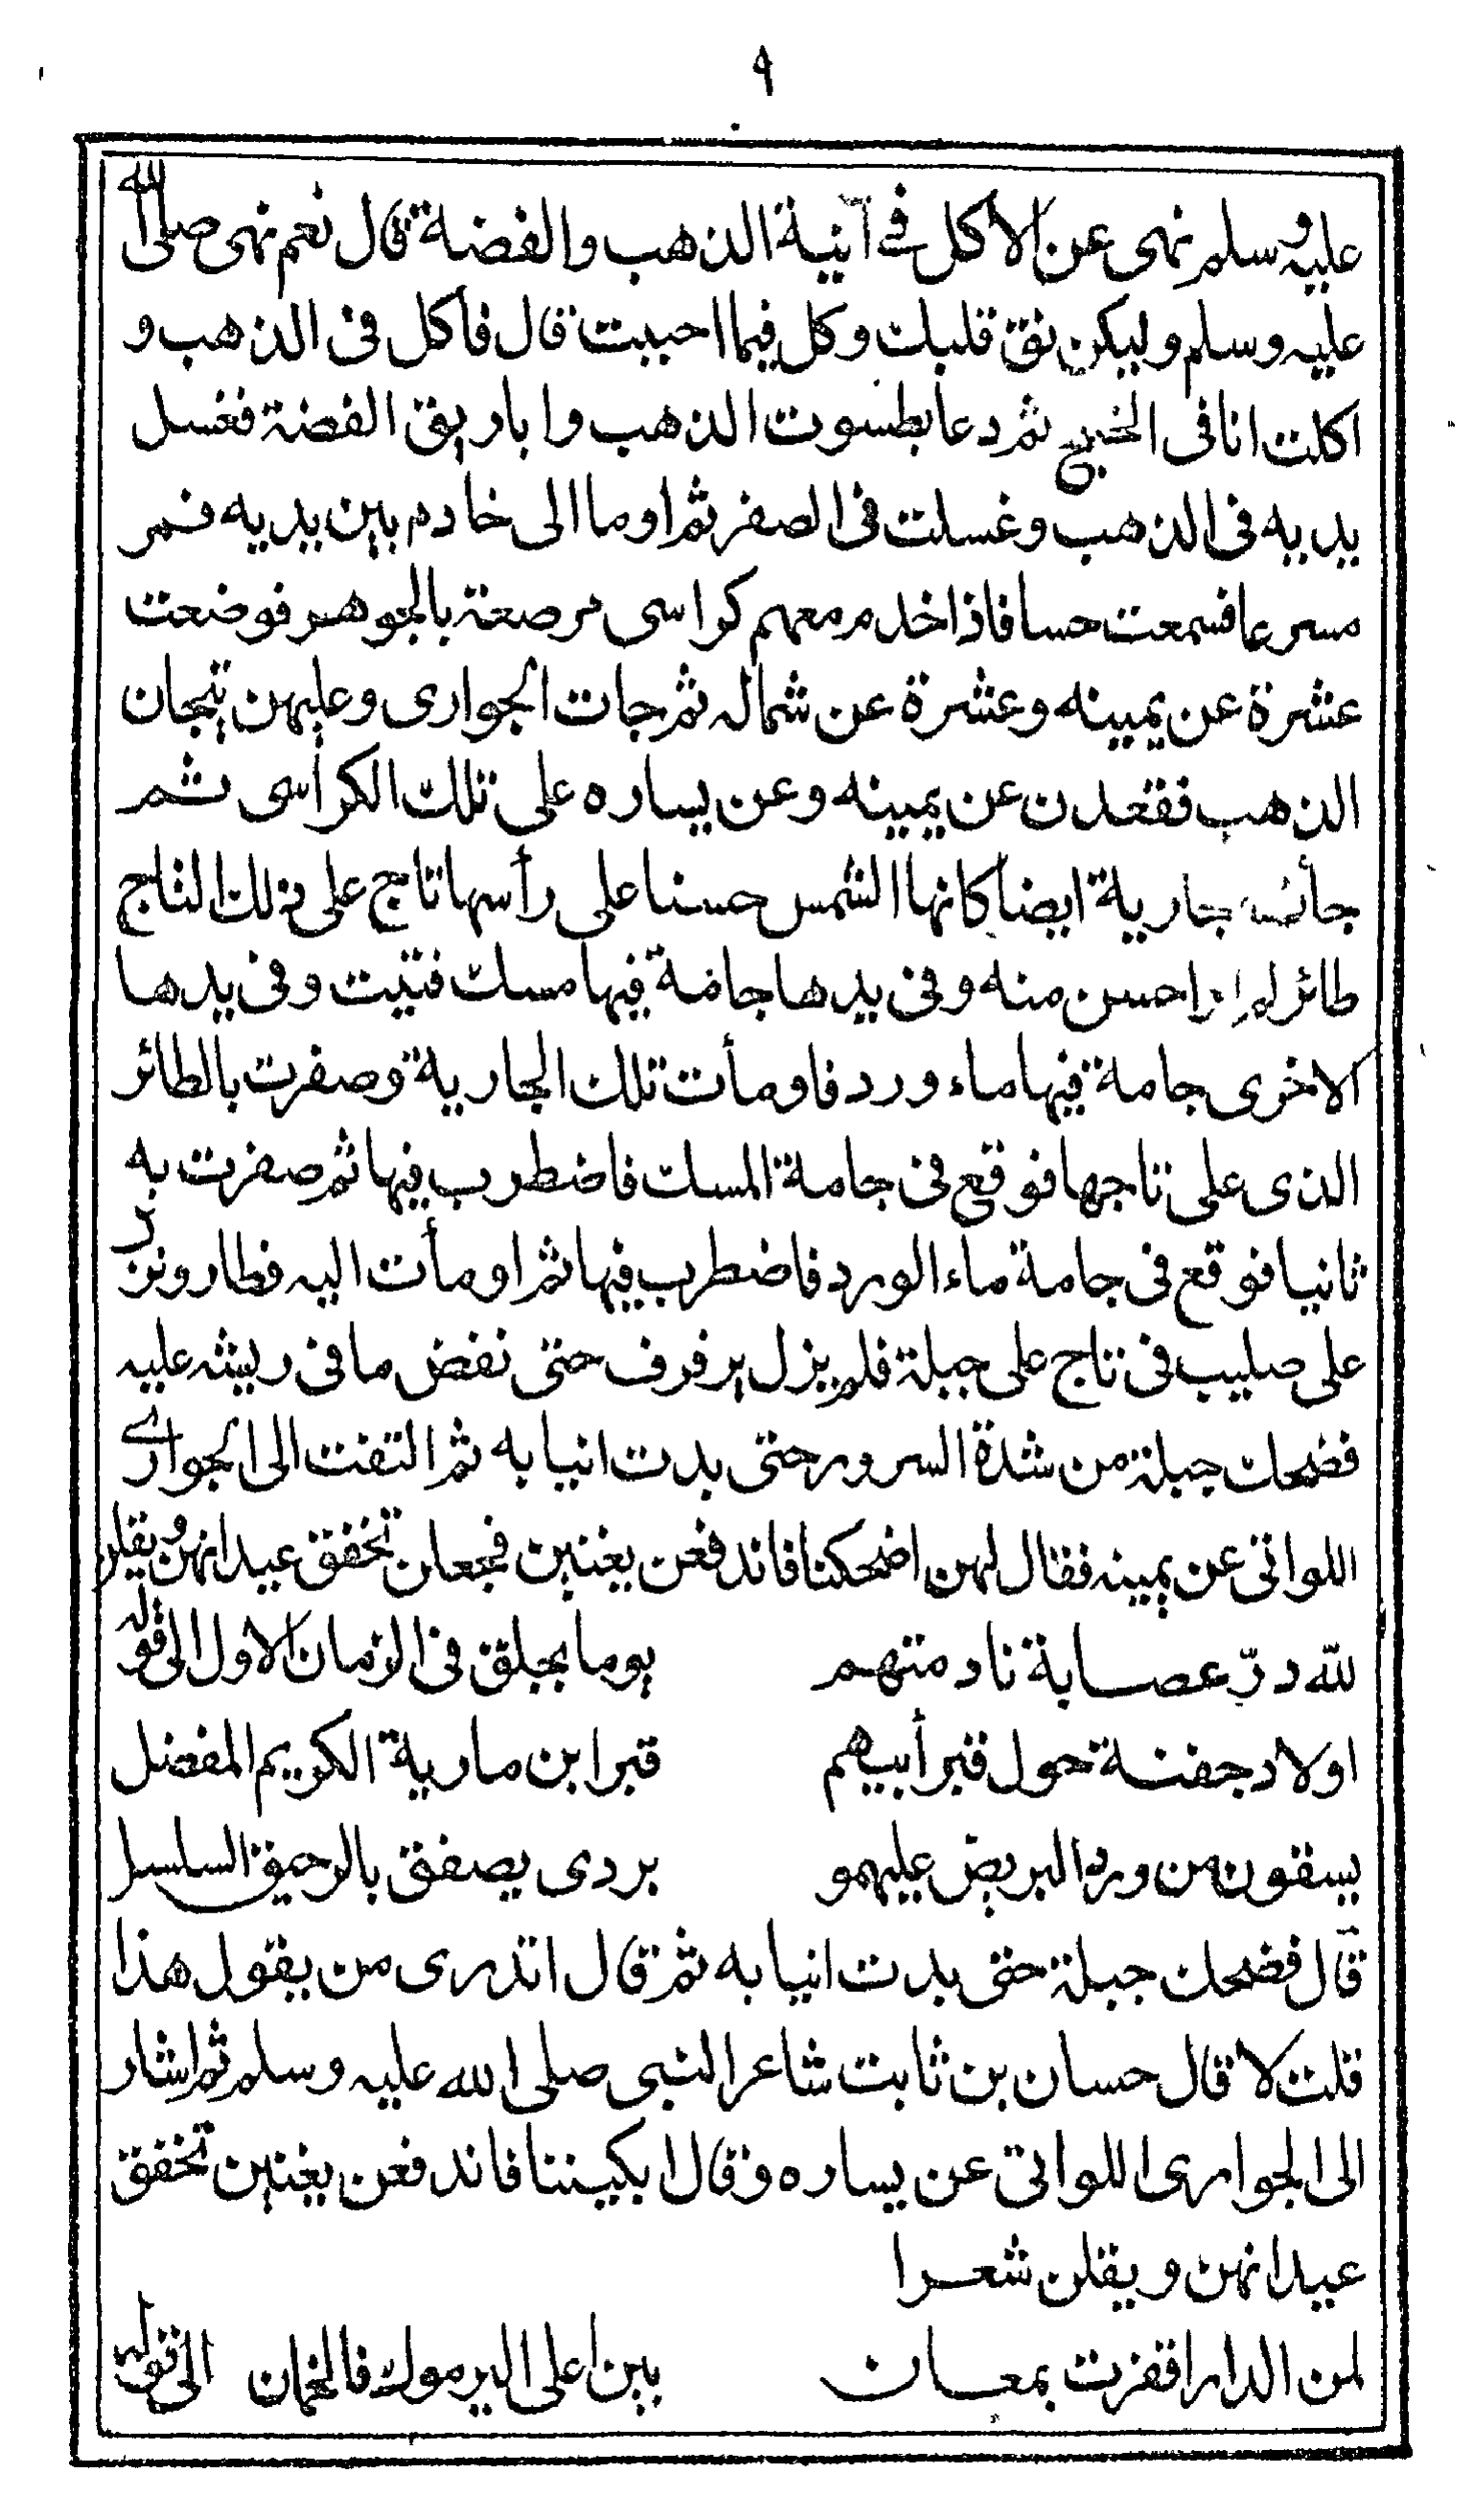 ٩
عليه وسلم نهى عن الاكل في آنية الذهب والفضة قال نعم نهى صلى الله
عليه وسلم وليكن نق قلبك وكل فيما احببت قال فاكل فى الذهب و
اكلت انا فى الخليج ثم دعا بطسوت الذهب وابار يق الفضة فغسل
يديه فى الذهب وغسلت فى الصفر ثم اوما الى خادم بين يديه فمر
مسرعا فسمعت حسا فاذا خدم معهم كراسى مرصعة بالجوهر فوضعت
عشرة عن يمينه وعشرة عن شماله ثم جات الجوارى وعليهن تيجان
الذهب فقعدن عن يمينه وعن يساره على تلك الكرأسى ثم
جأت جارية ايضا كانها الشمس حسنا على رأسها تاج على ذلك التاج
طائر لم ار احسن منه وفى يدها جامة فيها مسك فتيت وفى يدها
الاخرى جامة فيها ماء ورد فاومأت تلك الجارية وصفرت بالطائر
الذى على تاجها فوقع فى جامة المسك فاضطرب فيها ثم صفرت به
ثانيا فوقع فى جامة ماء الورد فاضطرب فيها ثم اومأت اليه فطار ونزل
على صليب فى تاج على جبلة فلم يزل يرفرف حتى نفض ما فى ريشه عليه
فضحك جبلة من شدة السرور حتى بدت انيابه ثم التفت الى الجوارے
اللواتى عن يمينه فقال لهن اضحكننا فاندفعن يغنين فجعلن تخفق عيدانهن ويقلن
لله درّ عصابة نادمتهم يوما بجلق فى الزمان الاول الى قوله
اولاد جفنة حول قبر أبيهم قبر ابن مارية الكريم المفضل
يسقون من ورد البريض عليهمو بردى يصفق بالرحيق السلسل
قال فضحك جبلة حتى بدت انيابه ثم قال اتدرى من يقول هذا
قلت لا قال حسان بن ثابت شاعر النبى صلى الله عليه وسلم ثم اشار
الى الجوارى اللواتى عن يساره وقال ابكيننا فاندفعن يغنين تخفق
عيدانهن ويقلن شعرا
لمن الدار اقفرت بمعان بين اعلى اليرموك فالخمان الى قوله